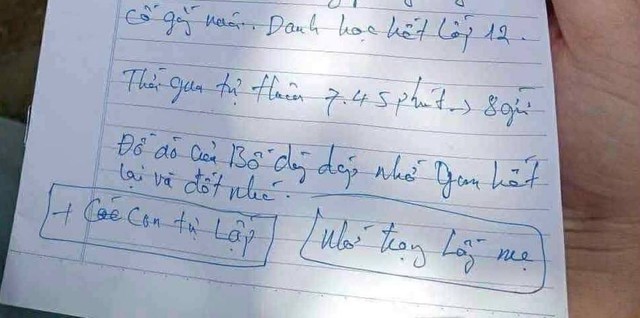 cố gắng nuôi. Danh học hết Lớp 12.
Thời gian tự thiêu 7.45 phút -> 8 giờ
Đồ đó của Bố dày dép nhớ gom hết
lại và đốt nhé.
+ Các con tự Lập
Nhớ Lấy mẹ